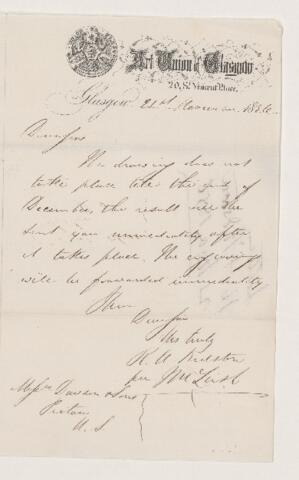 Art Union of Glasgow
20, St Vincent Place,
Glasgow 21st November 1856
Dear Sirs
The drawing does not
take place till the end of
December, the result will be
sent you immediately after
it takes place. The engravings
will be forwarded immediately
I am
Dear Sirs
Yrs truly
R. A. Kidston
per
Messrs Dawson & Sons
Pictou
N. S